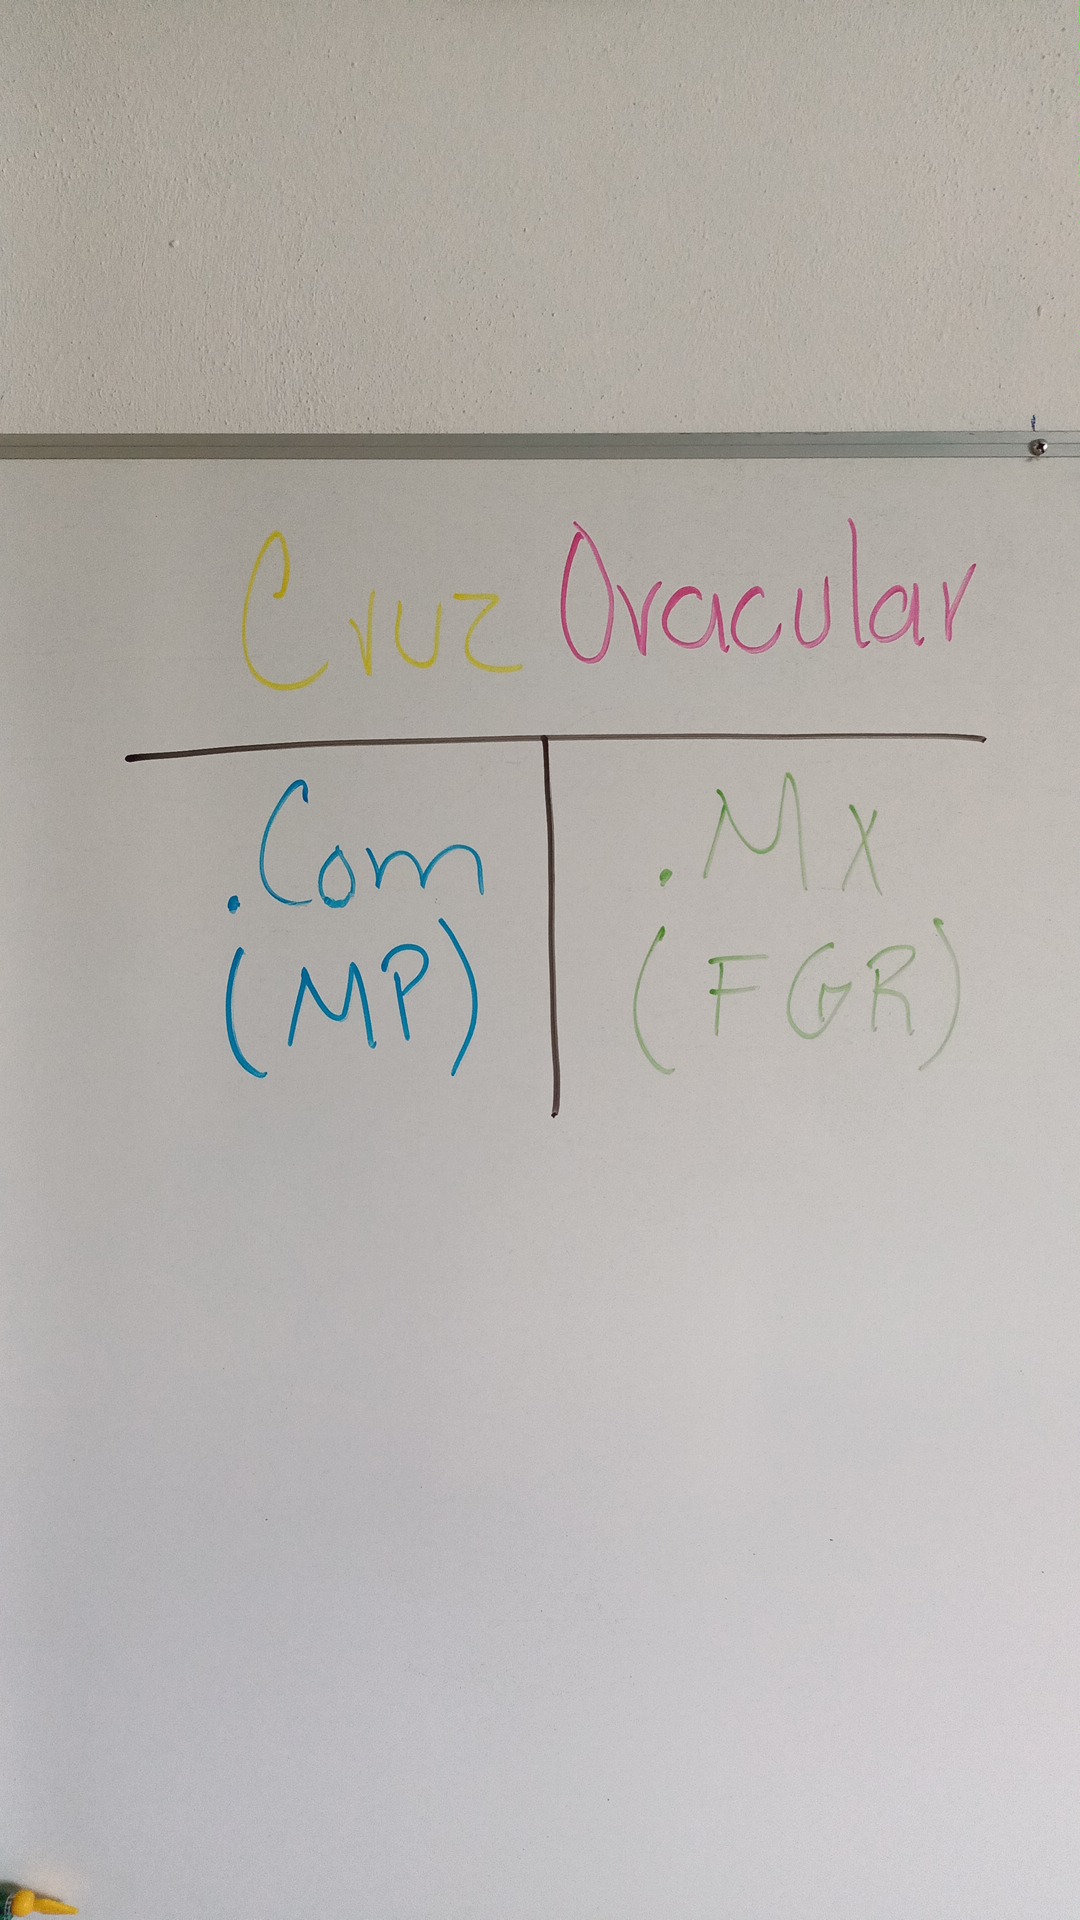 Cruz Oracular
.Com
(MP)
.Mx
(FGR)